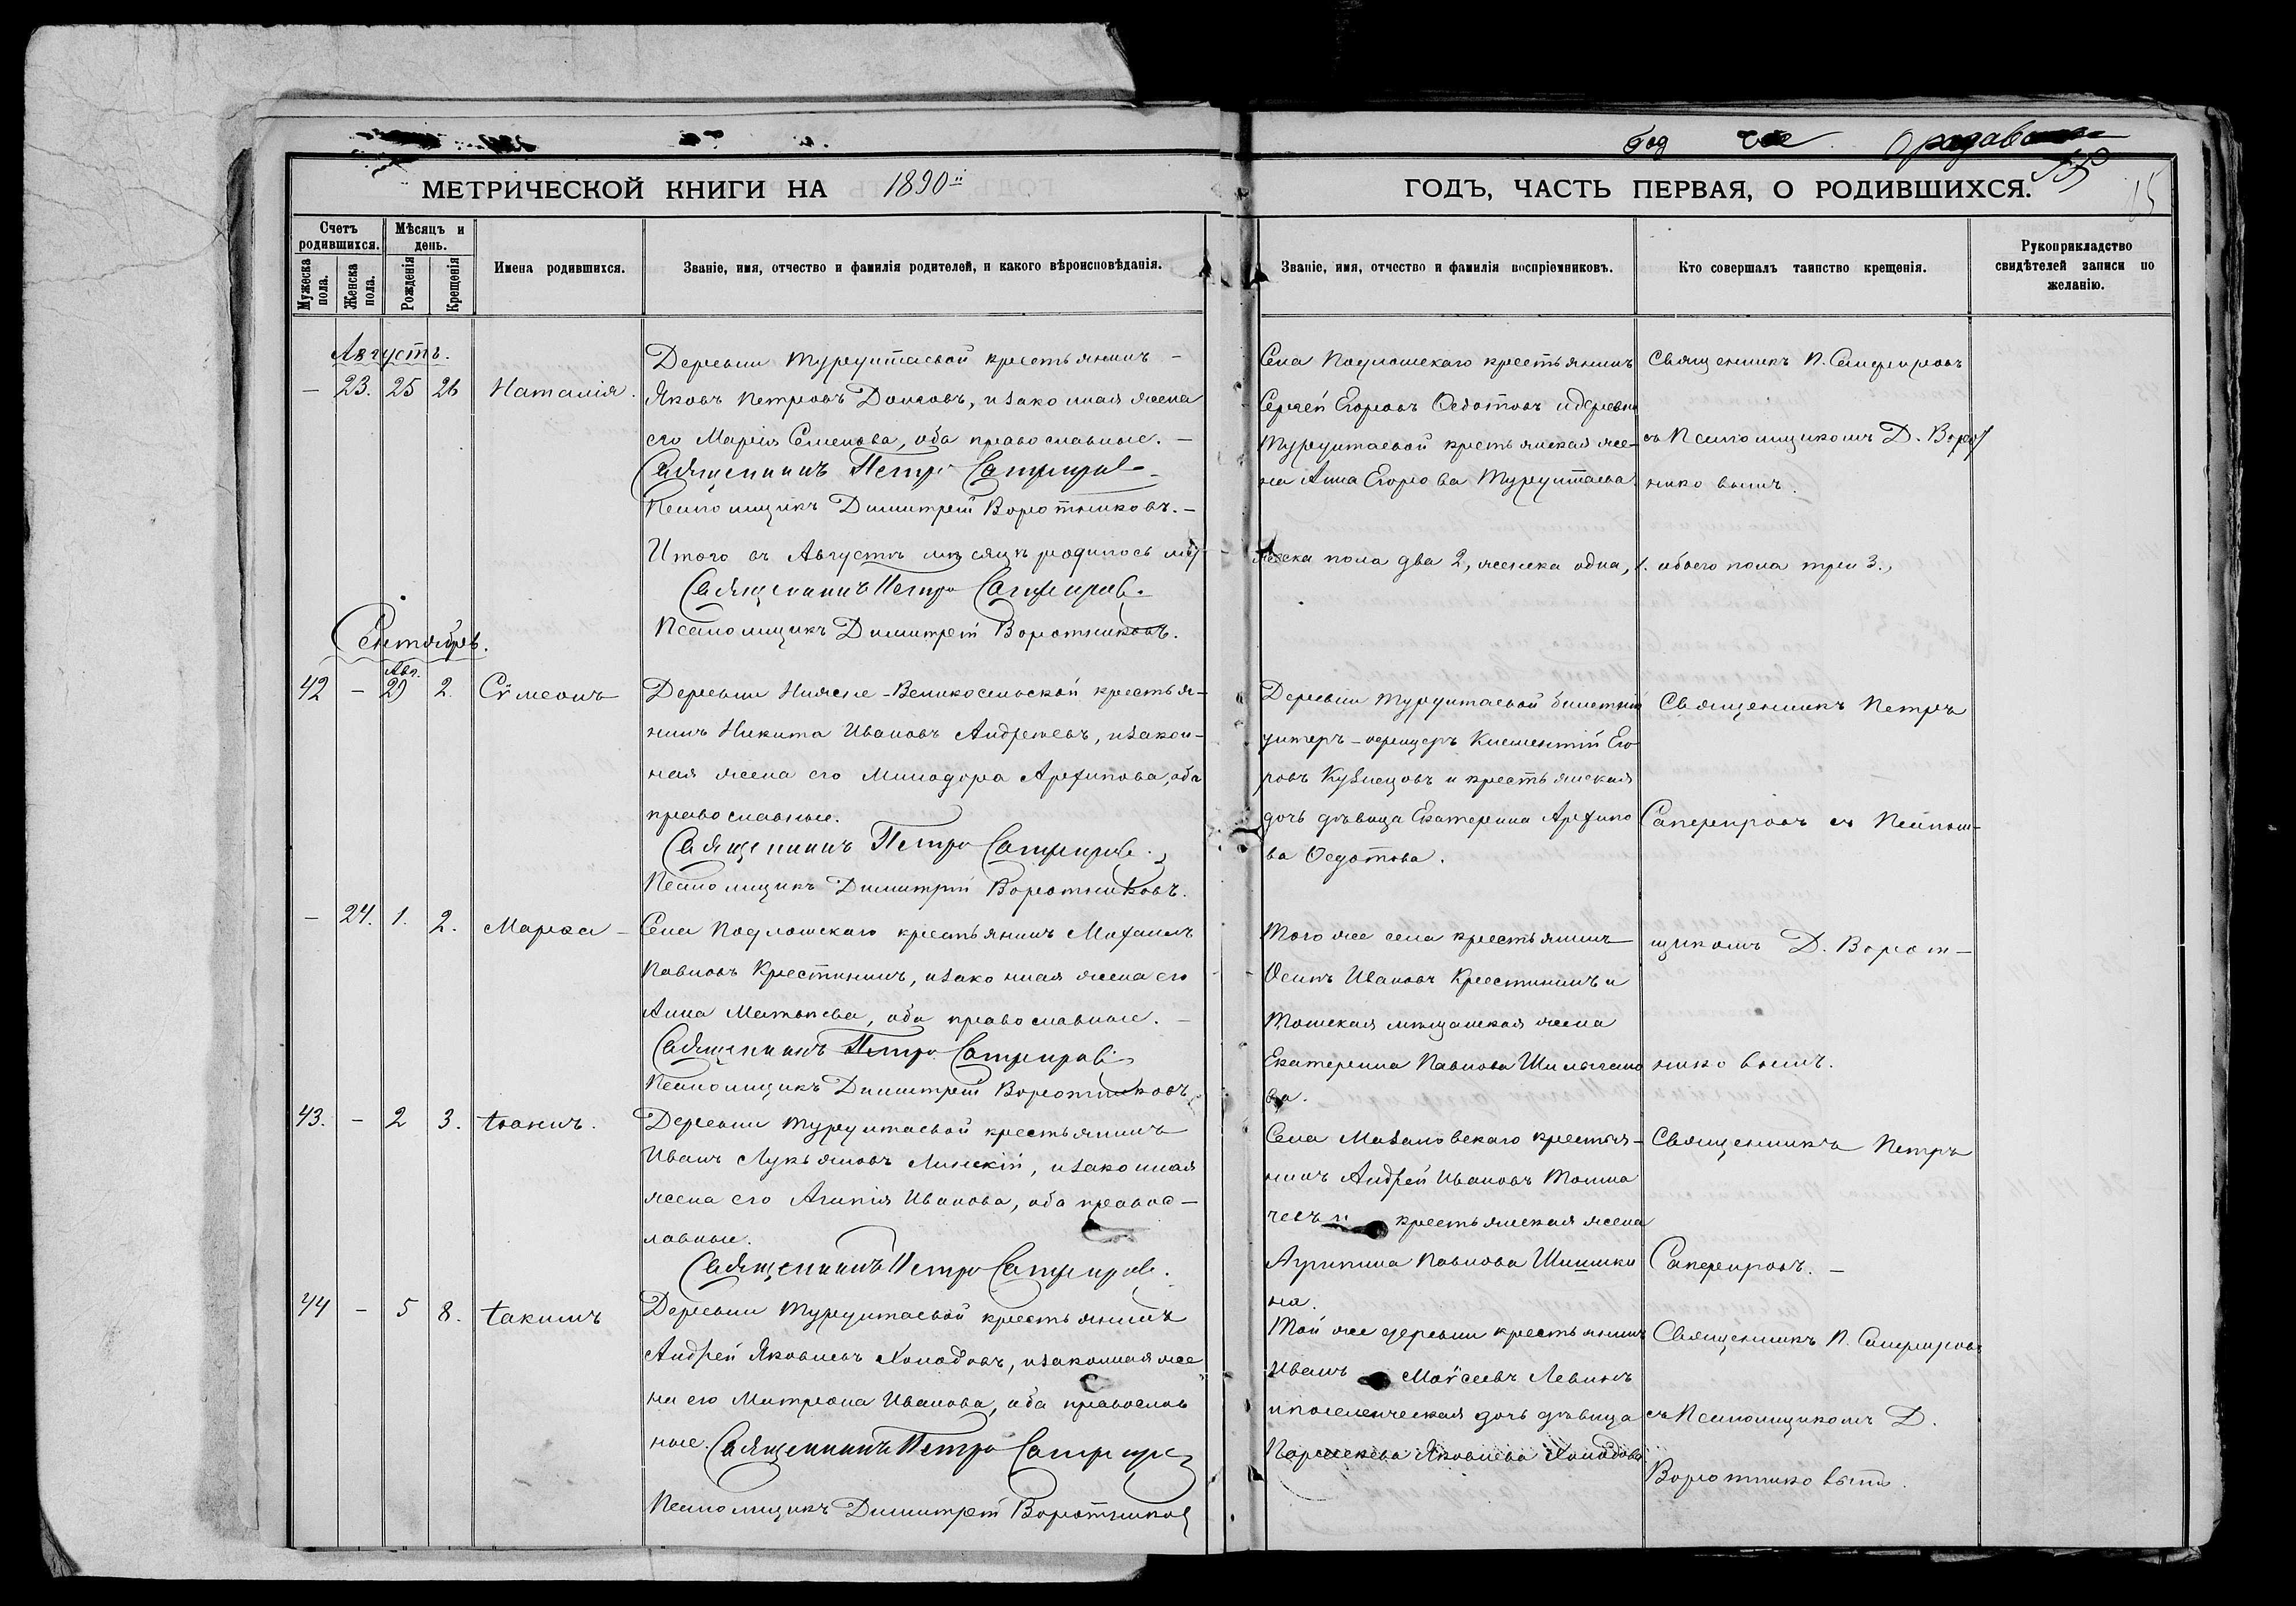 МЕТРИЧЕСКОЙ КНИГИ НА 1890
Счетъ родившихся.
Мужеска пола.
Женска пола.
Мѣсяцъ и день.
Рожденія
Крещенія
Имена родившихся.
Званіе, имя, отчество и фамилія родителей, и какого вѣроисповѣданія.
Августъ.
— 23. 25 26 Наталія.
Деревни Турунтаевой крестьянинъ —
Яковъ Петровъ Долговъ, и законная жена
его Марія Семенова, оба православные. —
Священникъ Петръ Сапфировъ
Псаломщикъ Димитрій Воротниковъ. —
Итого въ Августѣ мѣсяцѣ родилось му
Священникъ Петръ Сапфировъ.
Псаломщикъ Димитрій Воротниковъ.
Сентябрь.
Авг.
42 — 29 2. Сѵмеонъ
Деревни Нижне-Великосельской крестья-
нинъ Никита Ивановъ Андреевъ, и закон-
ная жена его Минодора Архипова, оба
православные.
Священникъ Петръ Сапфировъ.
Псаломщикъ Димитрій Воротниковъ.
— 24. 1. 2. Марѳа —
Села Подломскаго крестьянинъ Михаилъ
Павловъ Крестининъ, и законная жена его
Анна Матвѣева, оба православные. —
Священникъ Петръ Сапфировъ
Псаломщикъ Димитрій Воротниковъ
43. — 2 3. Іоакимъ.
Деревни Турунтаевой крестьянинъ
Иванъ Лукьяновъ Линскій, и законная
жена его Агапія Иванова, оба правос-
лавные.
Священникъ Петръ Сапфировъ.
44 — 5 8. Іакимъ
Деревни Турунтаевой крестьянинъ
Андрей Яковлевъ Холодовъ, и законная же
на его Матрона Иванова, оба православ
ные. Священникъ Петръ Сапфировъ
Псаломщикъ Димитрій Воротников
ГОДЪ, ЧАСТЬ ПЕРВАЯ, О РОДИВШИХСЯ.
15
Званіе, имя, отчество и фамилія воспріемниковъ.
Кто совершалъ таинство крещенія.
Рукоприкладство свидѣтелей записи по желанію.
Села Подломскаго крестьянинъ
Сергѣй Егоровъ Ѳедотовъ и деревни
Турунтаевой крестьянская же-
на Анна Егорова Турунтаева
Священникъ П. Сапфировъ
съ Псаломщикомъ Д. Ворот
никовымъ.
жеска пола два 2, женска одна, 1. обоего пола три 3.
Деревни Турунтаевой билетный
унтеръ-офицеръ Климентій Его
ровъ Кузнецовъ и крестьянская
дочь дѣвица Екатерина Архипо
ва Ѳедотова.
Священникъ Петръ
Сапфировъ съ Псалом-
Того же села крестьянинъ
Осипъ Ивановъ Крестининъ и
Томская мѣщанская жена
Екатерина Павлова
ва.
щикомъ Д. Ворот-
никовымъ.
Села Мазаловскаго крестья-
нинъ Андрей Ивановъ Толма
чевъ и крестьянская жена
Агрипина Павлова Шишки
на.
Священникъ Петръ
Сапфировъ. —
Той же деревни крестьянинъ
Иванъ Моѵсеевъ Левинъ
и поселенческая дочь дѣвица
Параскева Яковлева Холодова
Священникъ П. Сапфировъ
съ Псаломщикомъ Д.
Воротниковымъ.